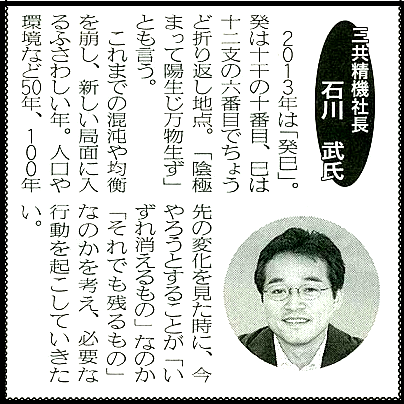 三共精機社長
石川　武氏
２０１３年は「癸巳」。
癸は十干の十番目、巳は
十二支の六番目でちょう
ど折り返し地点。「陰極
まって陽生じ万物生ず」
とも言う。
これまでの混沌や均衡
を崩し、新しい局面に入
るふさわしい年。人口や
環境など50年、１００年
先の変化を見た時に、今
やろうとすることが「い
ずれ消えるもの」なのか
「それでも残るもの」
なのかを考え、必要な
行動を起こしていきた
い。